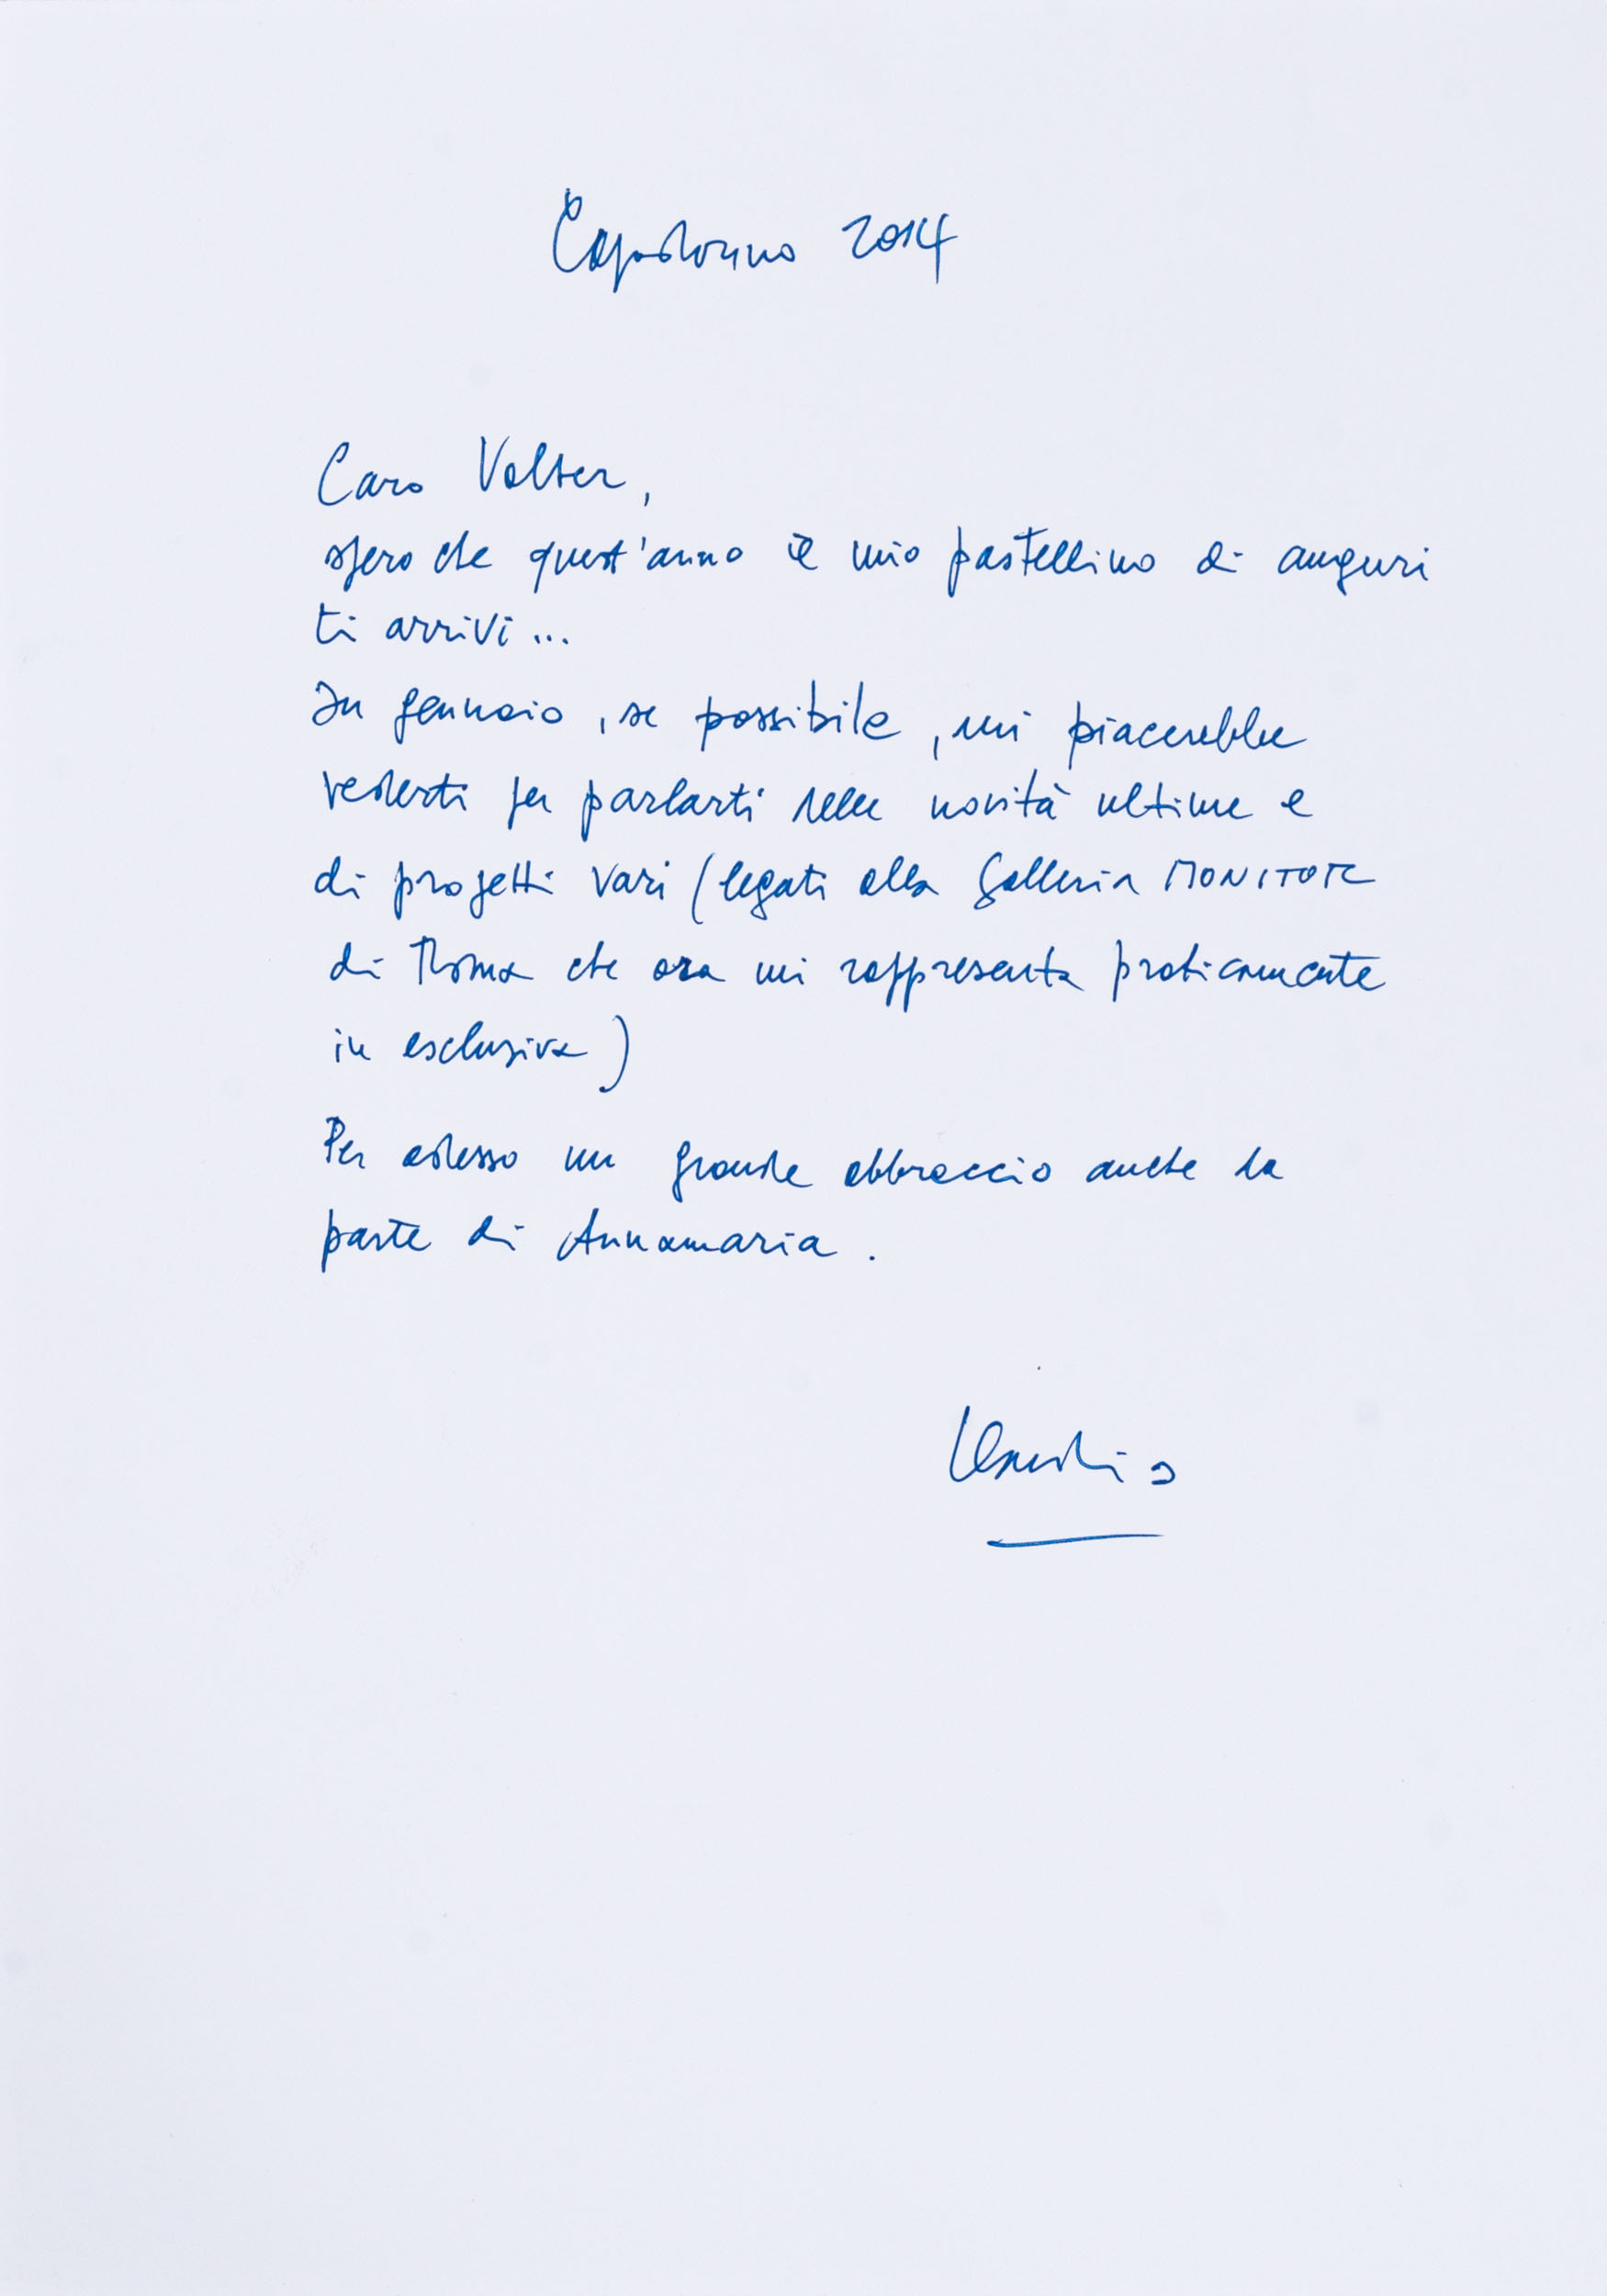 Capodanno 2014
Caro Valter,
spero che quest'anno il mio pastellino di auguri
ti arrivi...
In gennaio, se possibile, mi piacerebbe
vederti per parlarti delle novità ultime e
di progetti vari (legati alla Galleria MONITOR
di Roma che ora mi rappresenta praticamente
in esclusiva)
Per adesso un grande abbraccio anche da
parte di Annamaria.